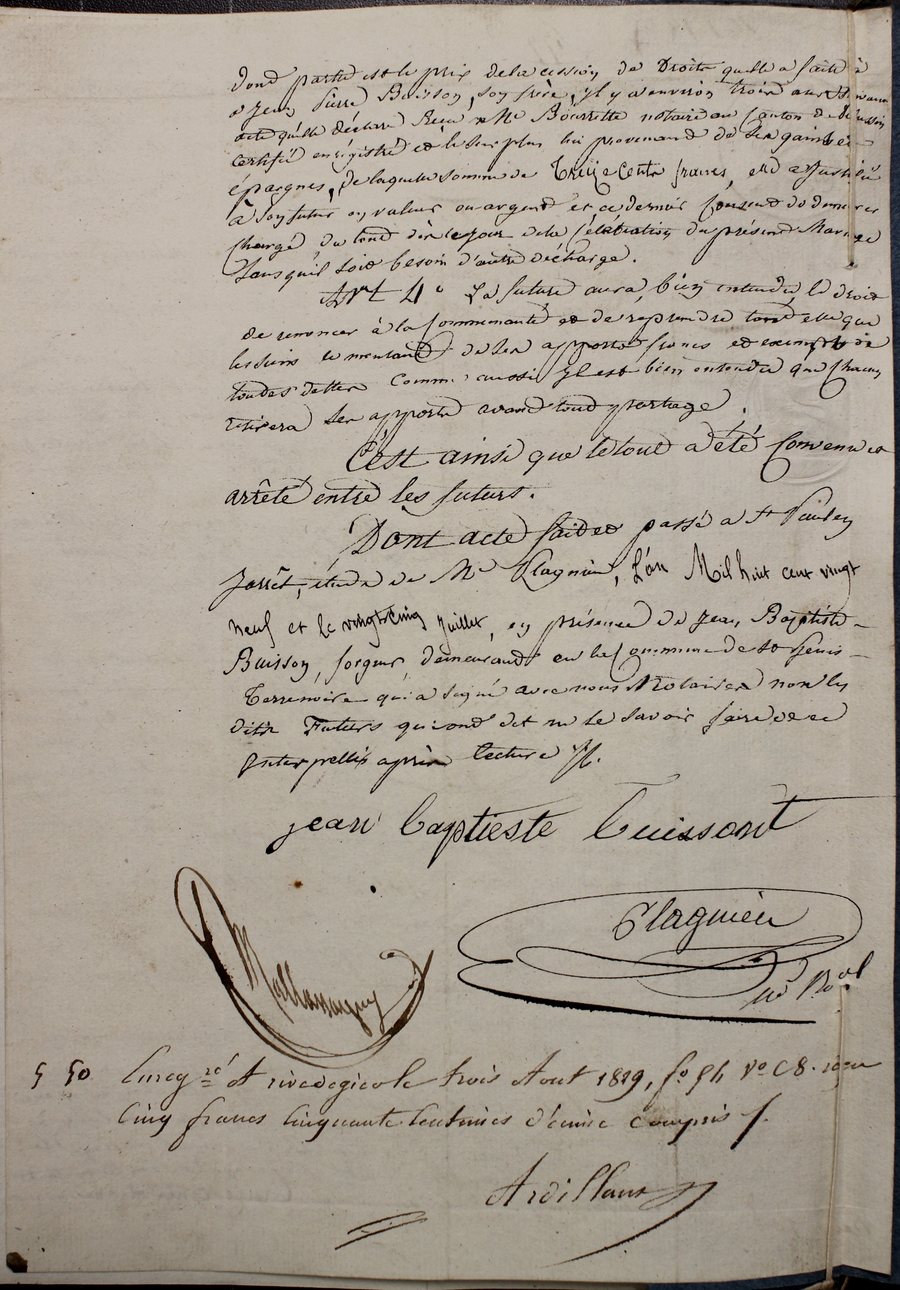 dont partie est le prix de la cession de Droits qu'elle a faite à
Jean Pierre Buisson, son frère, il y a environ trois ans suivant
acte qu'elle déclare Recu Me Bourrette notaire au Canton de
certifié enrégistré et le surplus lui provenant de ses gains et
épargnes, de laquelle somme de Treize Cents francs, elle a justifié
à son futur en valeur ou argent et ce dernier Consent de demeurer
Chargé du tout dès le jour de la Célébration du présent Mariage
sans qu'il soit besoin d'autre décharge.
Art 4o La future aura, bien entendu, le droit
de renoncer à la Communauté et de reprendre tant elle que
les siens le montant de ses apports francs et exempts de
toutes dettes Comme aussi il est bien entendu que Chacun
retirera ses apports avant tout partage.
C'est ainsi que le tout a été Convenu et
arrêté entre les futurs.
Dont acte fait et passé a St Paul en
Jarrêt, étude de Me Plagnieu, L'an Mil huit cent vingt
neuf et le vingt cinq juillet, en présence de Jean Baptiste
Buisson, forgeur, demeurant en la Commune de St Genis
Terrenoire qui a signé avec nous Notaires non les
dits Futurs qui ont dit ne le savoir faire de ce
Interpellés après lecture
jean baptieste buissont
Plagnieu
no Roal
5 50 Enregré A rivedegier le trois Aout 1829, fo 54 Vo C 8. reçu
Cinq francs Cinquante Centimes d'écime compris
Ardillans